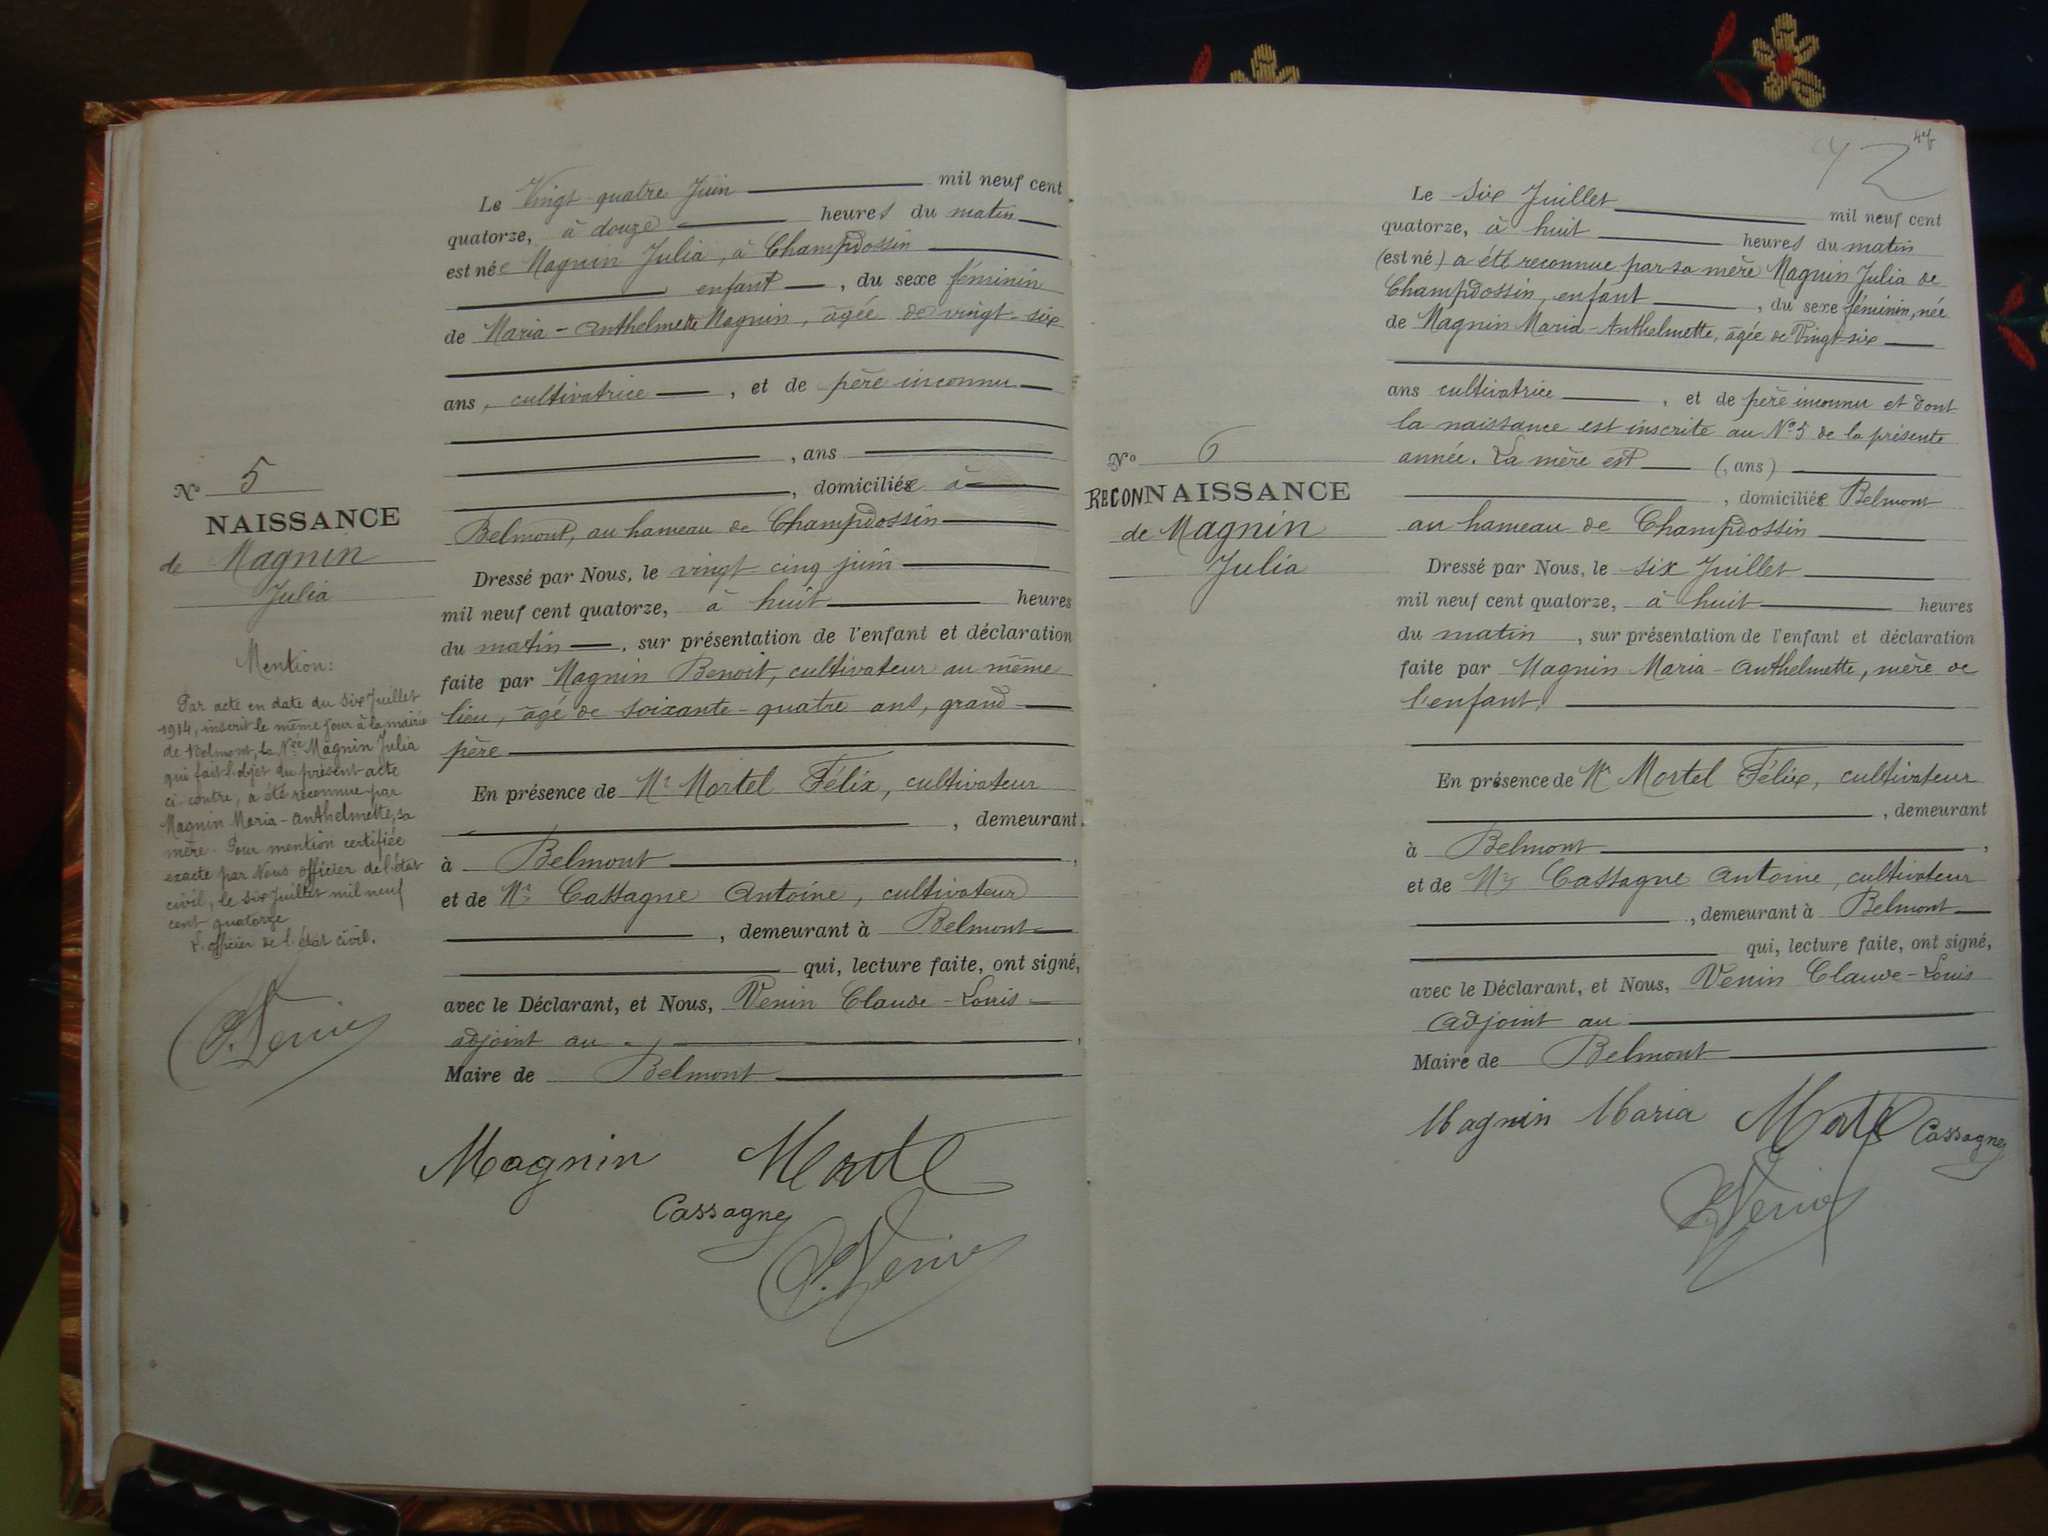 N° 5
NAISSANCE
de Magnin
Julia
Mention:
Par acte en date du six Juillet
1914, inscrit le même jour à la mairie
de Belmont, la Née Magnin Julia
qui fait l'objet du présent acte
ci-contre, a été reconnue par
Magnin Maria-Anthelmette, sa
mère. Pour mention certifiée
exacte par Nous officier de l'état
civil, le six Juillet mil neuf
cent quatorze
L'officier de l'état civil.
C. Venin
Le Vingt-quatre Juin mil neuf cent
quatorze, à douze heures du matin
est née Magnin Julia, à Champdossin
enfant, du sexe féminin
de Maria-Anthelmette Magnin, âgée de vingt-six
ans, cultivatrice, et de père inconnu
, ans
, domiciliée à
Belmont, au hameau de Champdossin
Dressé par Nous, le vingt cinq juin
mil neuf cent quatorze, à huit heures
du matin, sur présentation de l'enfant et déclaration
faite par Magnin Benoit, cultivateur au même
lieu, âgé de soixante-quatre ans, grand
père
En présence de Mr Mortel Félix, cultivateur
, demeurant
à Belmont,
et de Mr Cassagne Antoine, cultivateur
, demeurant à Belmont
qui, lecture faite, ont signé,
avec le Déclarant, et Nous, Venin Claude-Louis
adjoint au,
Maire de Belmont
Magnin Mortel
Cassagne
C. Venin
42
N° 6
RECONNAISSANCE
de Magnin
Julia
Le six Juillet mil neuf cent
quatorze, à huit heures du matin
(est né) a été reconnue par sa mère Magnin Julia de
Champdossin, enfant, du sexe féminin, née
de Magnin Maria-Anthelmette, âgée de Vingt-six
ans cultivatrice, et de père inconnu et dont
la naissance est inscrite au N° 5 de la présente
année. La mère est (, ans)
, domiciliée Belmont
au hameau de Champdossin
Dressé par Nous, le six Juillet
mil neuf cent quatorze, à huit heures
du matin, sur présentation de l'enfant et déclaration
faite par Magnin Maria-Anthelmette, mère de
l'enfant.
En présence de Mr Mortel Félix, cultivateur
, demeurant
à Belmont,
et de Mr Cassagne Antoine, cultivateur
, demeurant à Belmont
qui, lecture faite, ont signé,
avec le Déclarant, et Nous, Venin Claude-Louis
adjoint au
Maire de Belmont
Magnin Maria Mortel Cassagne
C. Venin